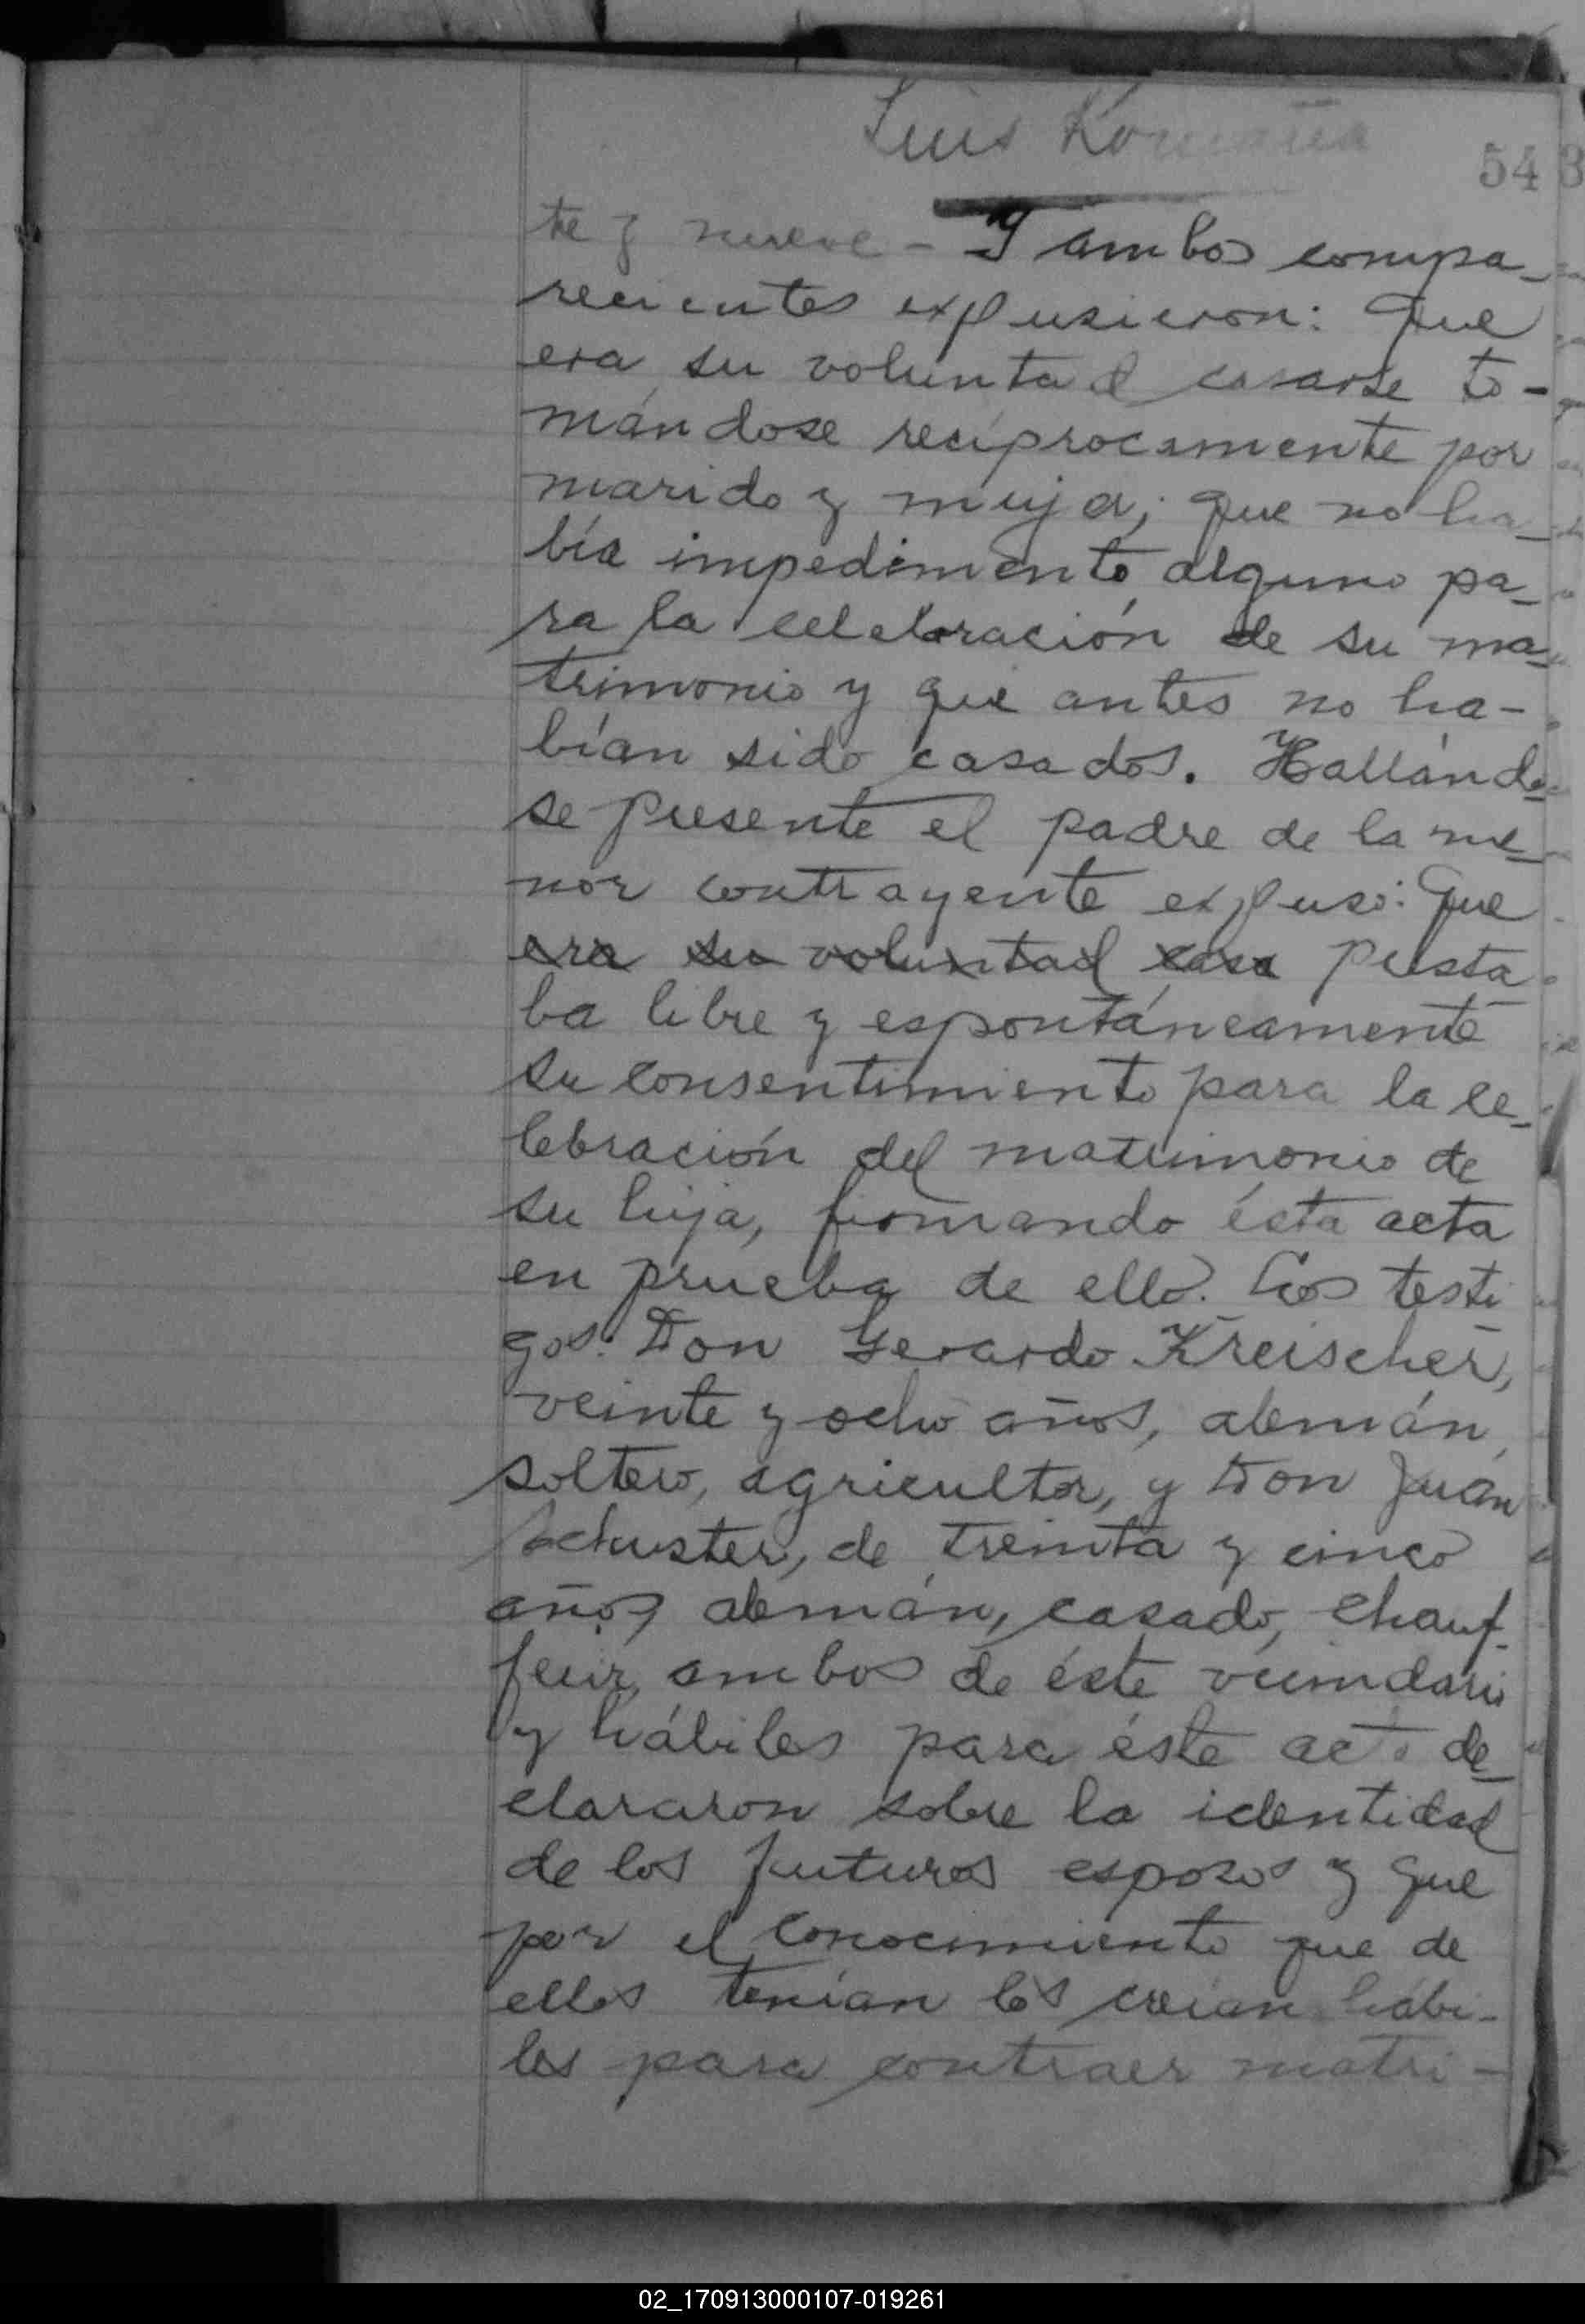 Luis Romaña
543
te y nueve - Y ambos compa-
recientes expusieron: Que
era su voluntad casarse to-
mándose recíprocamente por
marido y mujer; que no ha-
bía impedimento alguno pa-
ra la celebración de su ma-
trimonio y que antes no ha-
bían sido casados. Hallándo-
se presente el padre de la me-
nor contrayente expuso: Que
era su voluntad casa presta-
ba libre y espontáneamente
su consentimiento para la ce-
lebración del matrimonio de
su hija, firmando ésta acta
en prueba de ello. Los testi-
gos: Don Gerardo Kreischer,
veinte y ocho años, alemán,
soltero, agricultor, y Don Juán
Schuster, de treinta y cinco
años, alemán, casado, chauf-
feur, ambos de éste vecindario
y hábiles para éste acto de-
clararon sobre la identidad
de los futuros esposos y que
por el conocimiento que de
ellos tenían los creían hábi-
les para contraer matri-
02_170913000107-019261